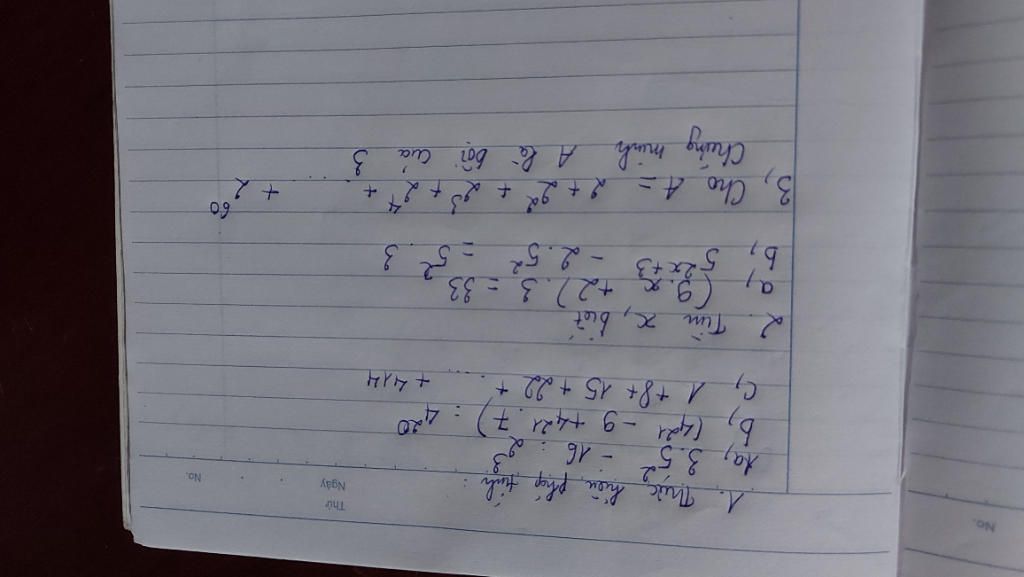 Thứ
Ngày
No.
No.
1. Thực hiện phép tính:
1a, 3.5² - 16 : 2³
b, (421 - 9 + 421.7) : 420
c, 1 + 8 + 15 + 22 + .... + 414
2. Tìm x, biết
a, (9.x + 2).3 = 33
b, 5²ˣ⁺³ - 2.5² = 5².3
3, Cho A = 2 + 2² + 2³ + 2⁴ + .... + 2⁶⁰
Chứng minh A là bội của 3